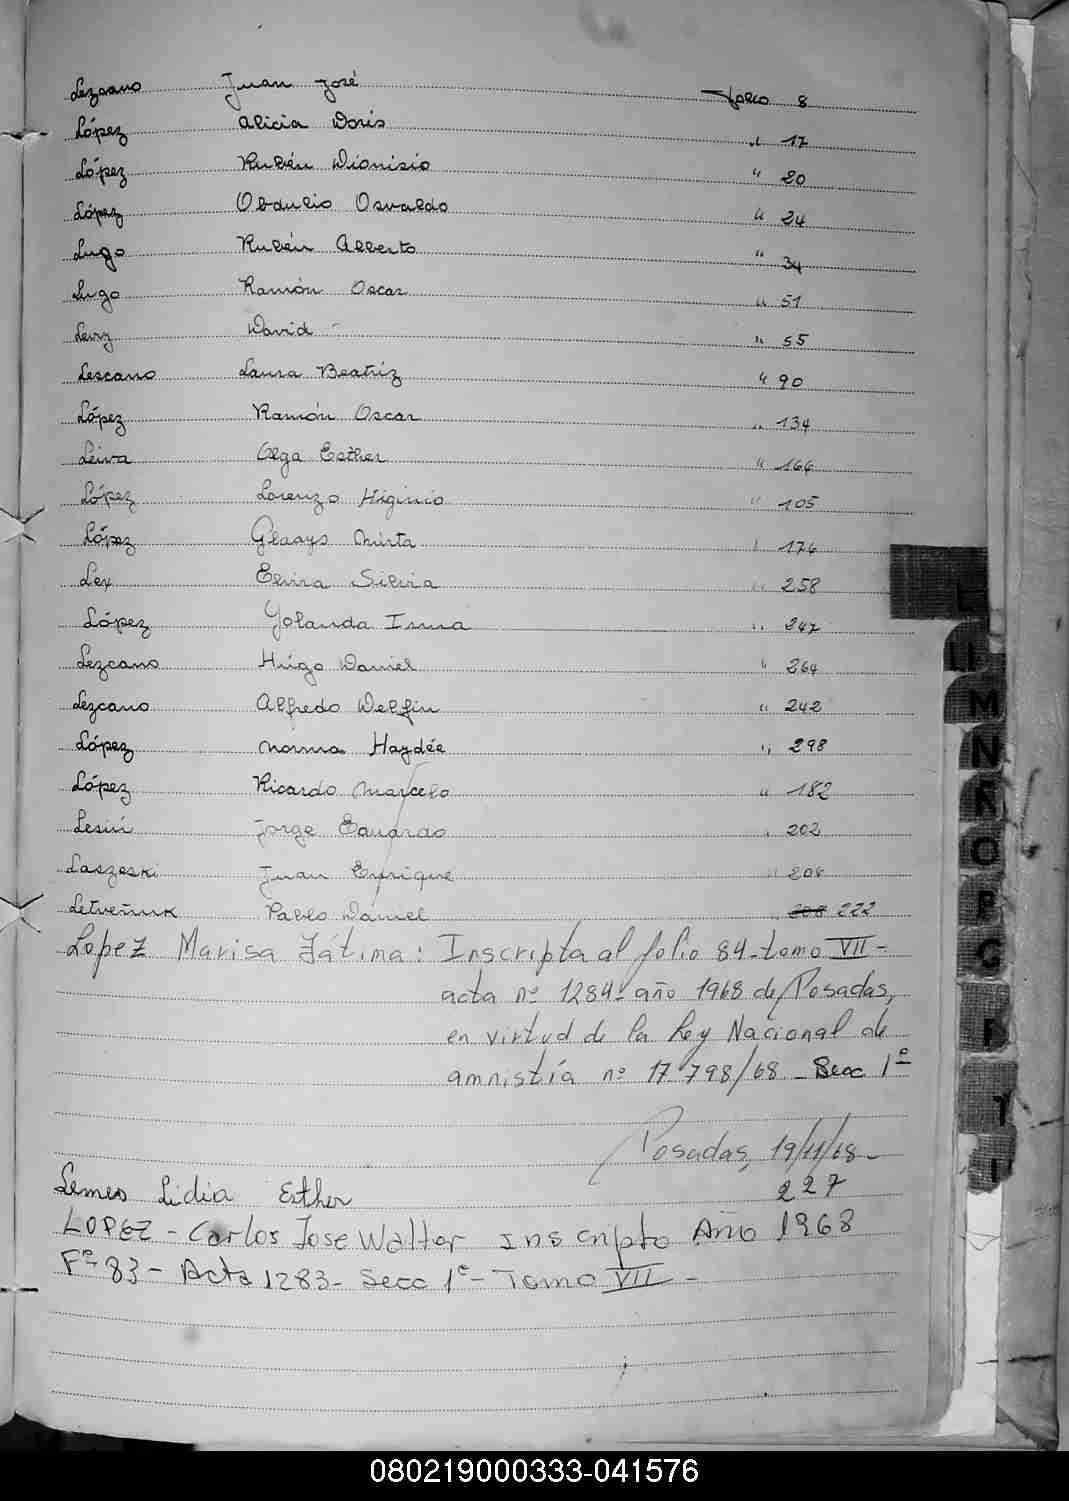 Lezcano Juan José Folio 8
López Alicia Doris " 17
López Rubén Dionisio " 20
López Obdulio Osvaldo " 24
Lugo Rubén Alberto " 34
Lugo Ramón Oscar " 51
David " 55
Lescano Laura Beatriz " 90
López Ramón Oscar " 134
Leiva Olga Esther " 166
López Lorenzo Higinio " 105
López Gladys Mirta " 176
Lex Elvira Silvia " 258
López Yolanda Irma " 247
Lezcano Hugo Daniel " 264
Lezcano Alfredo Delfín " 242
López Norma Haydée " 298
López Ricardo Marcelo " 182
Jorge Eduardo " 202
Laszeski Juan Enrique "
Pablo Daniel " 208 222
Lopez Marisa Fátima: Inscripta al folio 84-tomo VII-
acta nº 1284- año 1968 de Posadas,
en virtud de la Ley Nacional de
amnistía nº 17.798/68 - Secc 1ª
Posadas, 19/11/68-
Lemes Lidia Esther 227
LOPEZ - Carlos Jose Walter Inscripto Año 1968
Fº 83 - Acta 1283 - Secc 1ª - Tomo VII -
L
M
N
Ñ
O
P
T
080219000333-041576